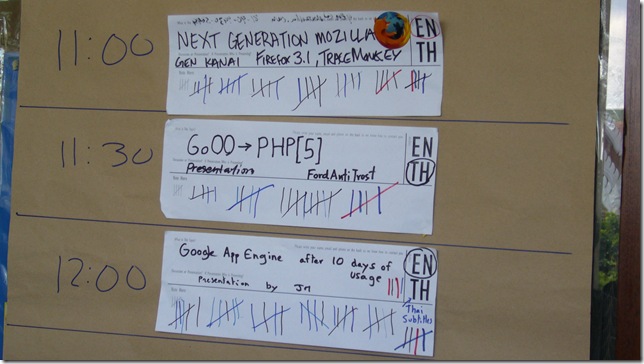 11:00
NEXT GENERATION MOZILLA
GEN KANAI FIREFOX 3.1, TRACEMONKEY
EN
TH
11:30
GoOO → PHP[5]
Presentation FordAntiTrust
EN
TH
12:00
Google App Engine after 10 days of
usage
Presentation by Jm
EN
TH
Thai
Subtitles